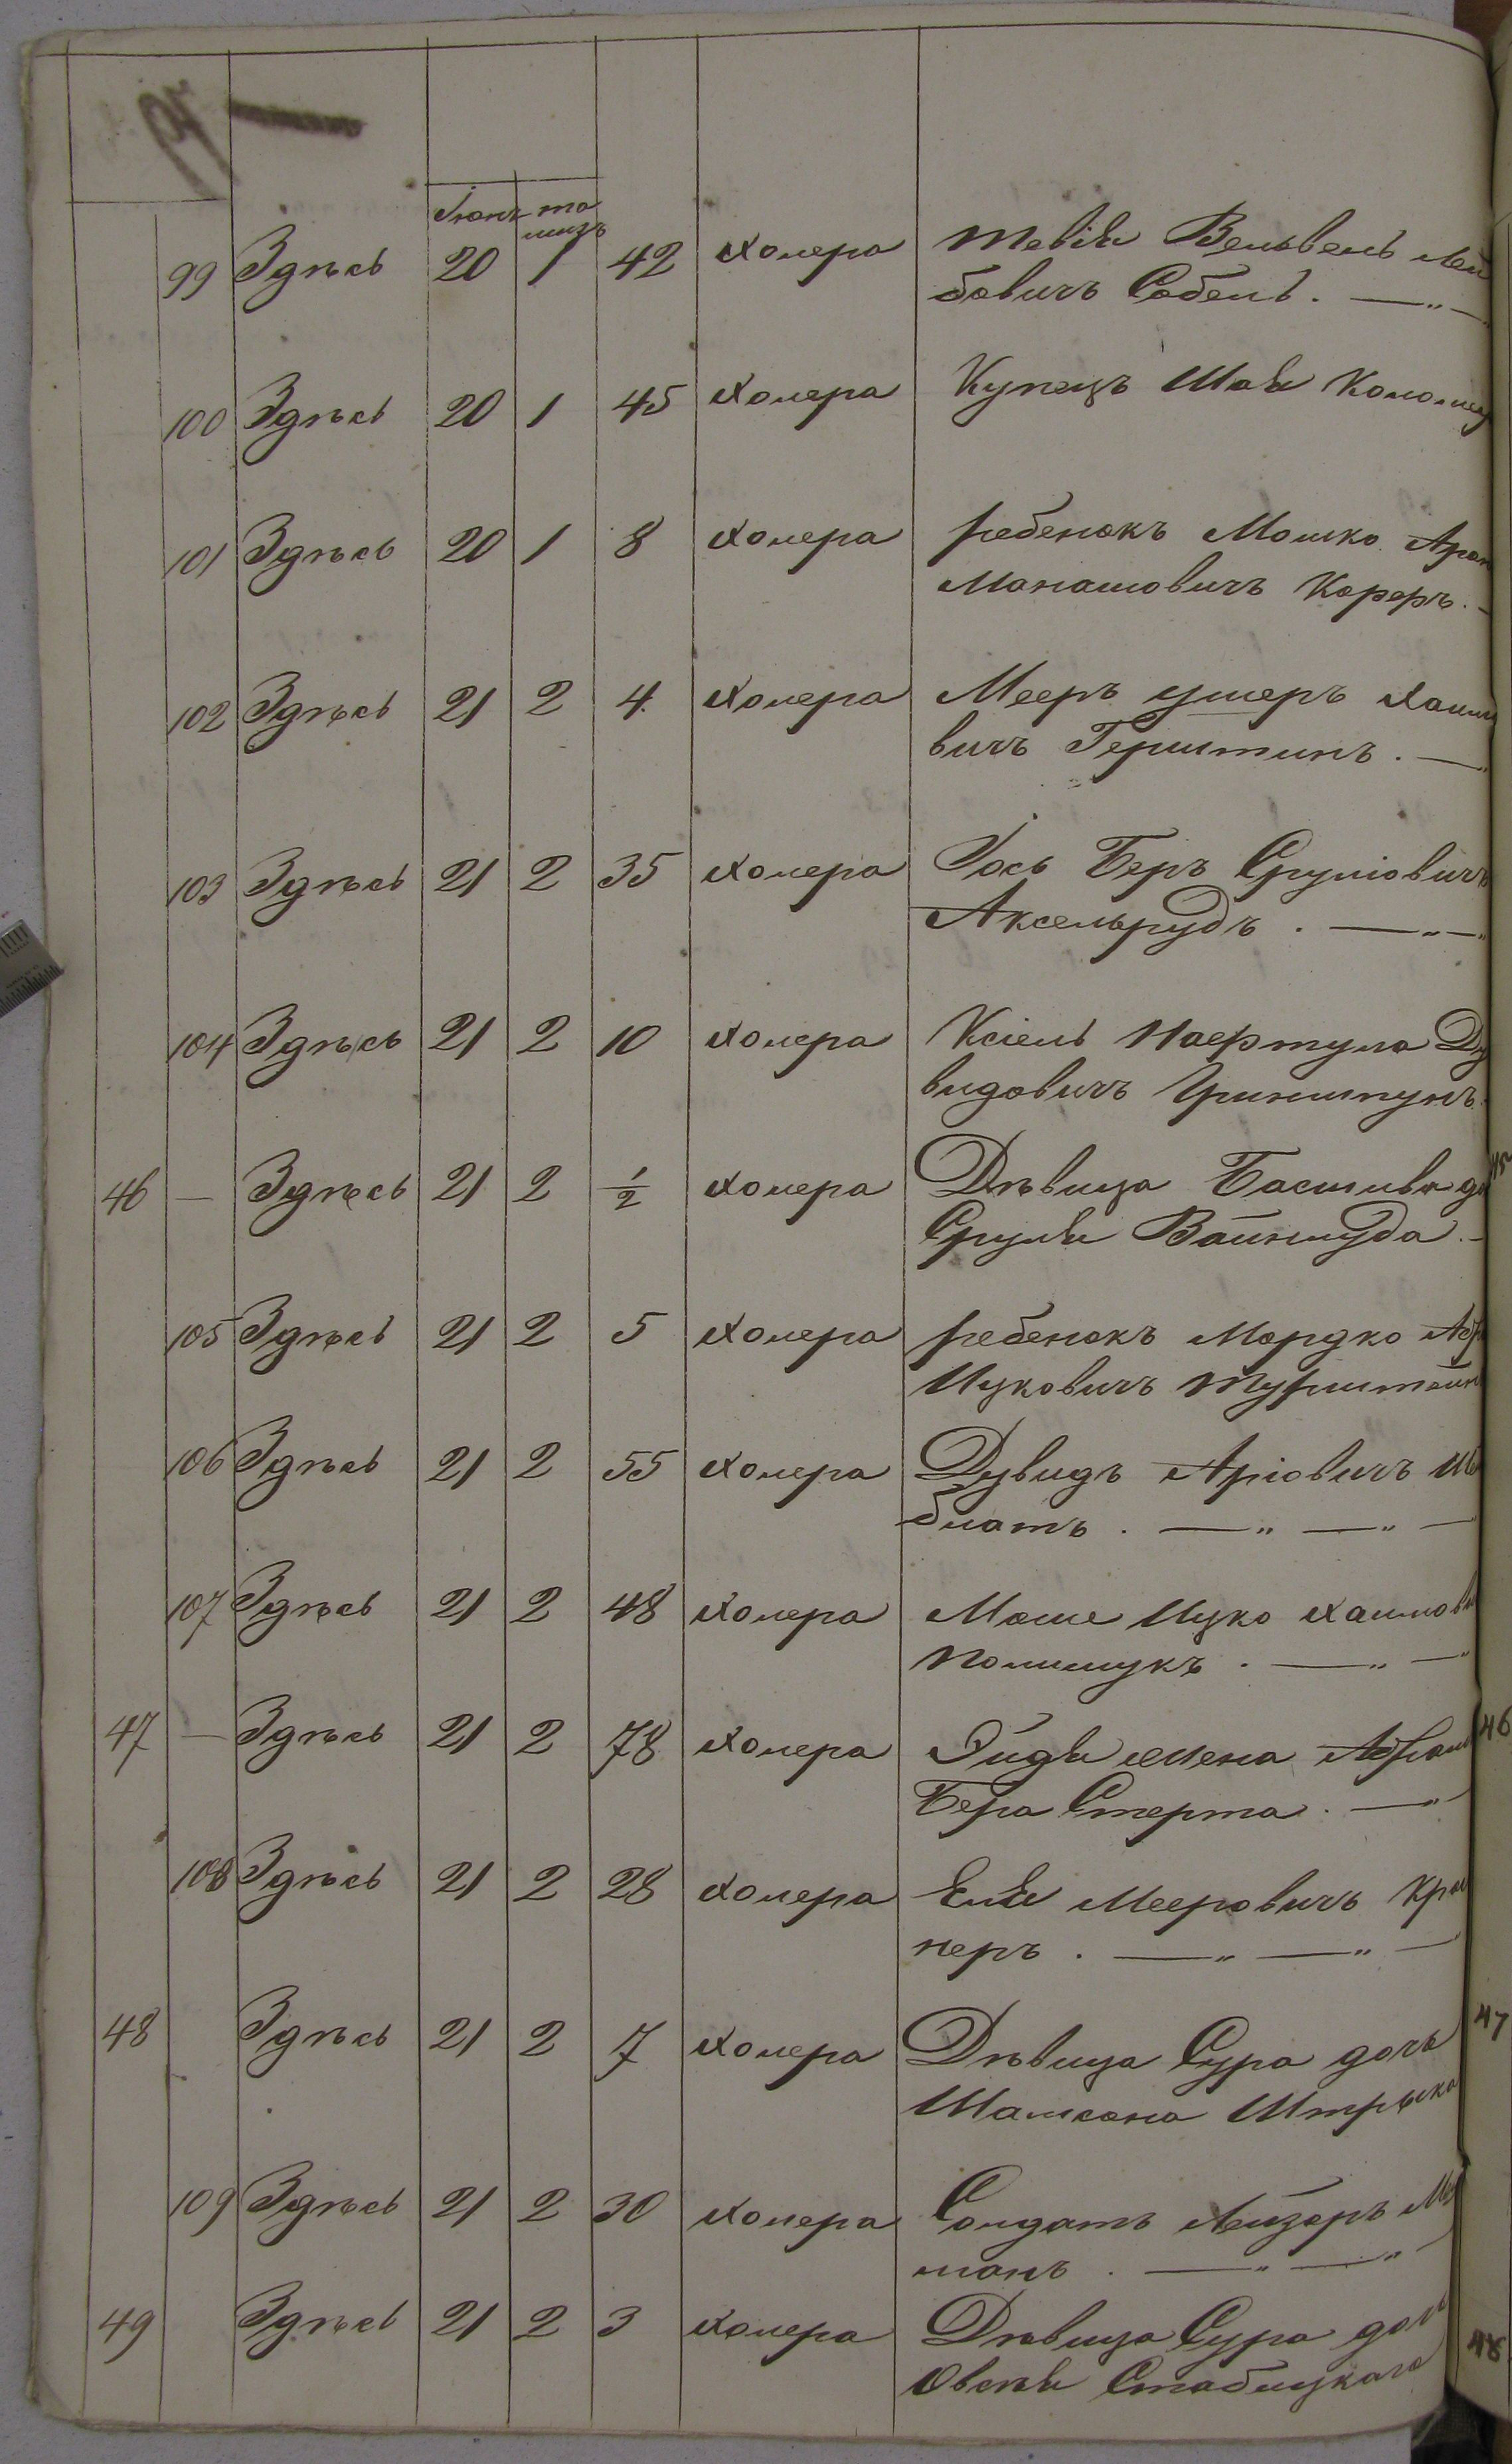 Іюнь та
музъ
99 Здѣсь 20 1 42 холера Тевія Вельвель Лей
бовичъ Собель. —„—
100 Здѣсь 20 1 45 холера Купецъ Шая
101 Здѣсь 20 1 8 холера ребенокъ Мошко Арон
Манашовичъ Кореръ. —
102 Здѣсь 21 2 4 холера Мееръ умеръ Хаимо
вичъ Герштинъ. —„
103 Здѣсь 21 2 35 холера Іось Беръ Сруліовичъ
Аксельрудъ. —„—„
104 Здѣсь 21 2 10 холера Ксіель Нафтула Ду
видовичъ Гриншпунъ.
46 — Здѣсь 21 2 1/2 холера Дѣвица Басшива
Сруля Вайншуба. —
105 Здѣсь 21 2 5 холера ребенокъ Мордко Абр
Ицковичъ
106 Здѣсь 21 2 55 холера Дувидъ Аріовичъ
блатъ. —„—„—
107 Здѣсь 21 2 48 холера Моше Ицко Хаимови
Полищукъ. —„—„
47 — Здѣсь 21 2 78 холера Эйдя жена Абрам 46
Бера Стерта. —„
108 Здѣсь 21 2 28 холера Еля Мееровичъ
неръ. —„—„—
48 Здѣсь 21 2 7 холера Дѣвица Сура дочь 47
Шамсона
109 Здѣсь 21 2 30 холера Солдатъ Лейзеръ
манъ. —„—„—
49 Здѣсь 21 2 3 холера Дѣвица Сура дочь 48
Овсѣя Стабицкаго